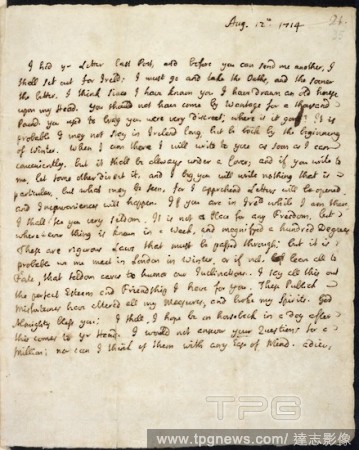 Aug. 12th 1714
I had yr Letter last Post, and before you can send me another, I
shall set out for Ireld: I must go and take the Oaths, and the sooner
the better. I think since I have known you I have drawn an old house
upon my Head. You should not have come by Wantage for a thousand
Pound. you used to brag you were very discreet; where is it gone? It is
probable I may not stay in Ireland long, but be back by the beginning
of Winter. When I am there I will write to you as soon as I can
conveniently, but it shall be always under a Cover; and if you write to
me, let some other direct it, and I beg you will write nothing that is
particular, but what may be seen, for I apprehend Letters will be opened
and Inconveniences will happen. If you are in Ireld while I am there
I shall see you very seldom. It is not a Place for any Freedom, but
where every thing is known in a Week, and magnifyed a hundred Degrees
These are rigorous Laws that must be passed through: but it is
probable we may meet in London in Winter, or if not, leave all to
Fate, that seldom cares to humor our Inclinations. I say all this out
of the perfect Esteem and Friendship I have for you. These Publick
Misfortunes have altered all my Measures, and broke my Spirits. God
Almighty bless you: I shall, I hope be on horseback in a day after
this comes to yr Hand. I would not answer your Questions for a
Million; nor can I think of them with any Ease of Mind. adieu.
TPG
www.tpgnews.com / 達志影像